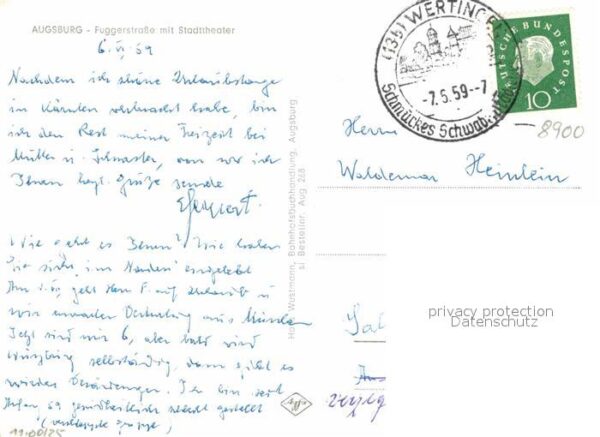 AUGSBURG - Fuggerstraße mit Stadttheater
6. VI. 59
Nachdem ich schöne Urlaubstage
in Kärnten verbracht habe, bin
ich den Rest meiner Freizeit bei
Mutter u. Schwester, von wo ich
Ihnen herzl. Grüße sende
Wie geht es Ihnen? Wie haben
Sie sich im Norden eingelebt
geht Herr F. auf Urlaub u
wir erwarten Vertretung aus München
Jetzt sind wir 6, aber bald wird
Würzburg selbständig, dann gibt es
wieder Ich bin seit
59 gesundheitlich schlecht gestellt
(verschleppte Grippe)
11.00/25
Hans Wustmann, Bahnhofsbuchhandlung, Augsburg
Bestellnr. Aug 268
(13b) WERTINGEN
-7.5.59--7
Schmückes Schwab
DEUTSCHE BUNDESPOST
10
8900
Herrn
Waldemar Heinlein
privacy protection
Datenschutz